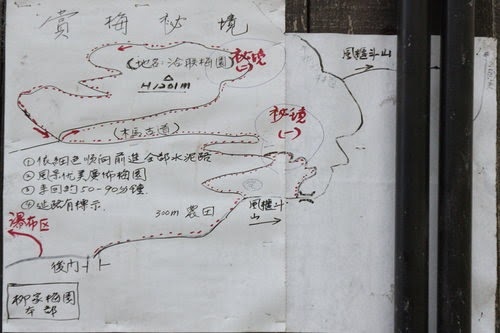 賞梅秘境
風櫃斗山
秘境
(二)
(地名:洽联梅園)
H1201m
秘境
(一)
(木馬古道)
①依細色順向前進全部水泥路
②風景优美廣佈梅園
③來回約50-90分鐘
④延路有標示.
300m 農田
風櫃斗
山
瀑布区
後門
柳家梅園
本部